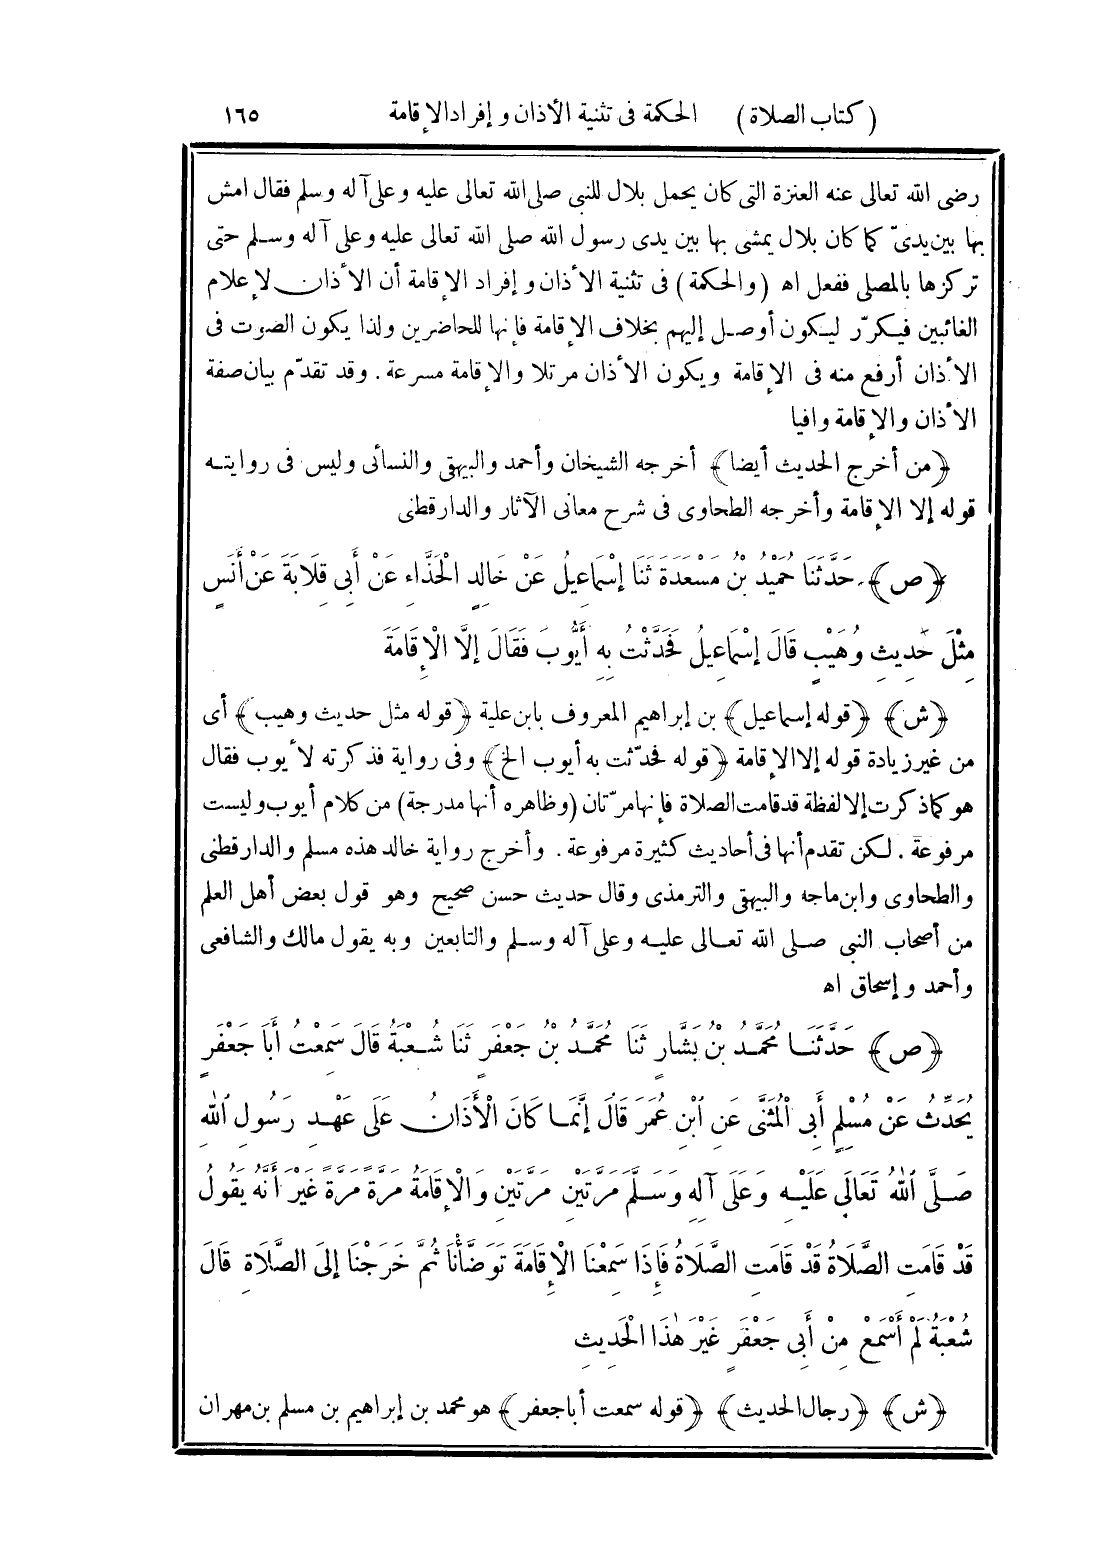 ( كتاب الصلاة ) الحكمة فى تثنية الأذان وإفراد الإقامة ١٦٥
رضى الله تعالى عنه العنزة التى كان يحمل بلال للنبى صلى الله تعالى عليه وعلى آله وسلم فقال امش
بها بين يدىّ كما كان بلال يمشى بها بين يدى رسول الله صلى الله تعالى عليه وعلى آله وسلم حتى
تركزها بالمصلى ففعل اه (والحكمة) فى تثنية الأذان وإفراد الإقامة أن الأذان لإعلام
الغائبين فيكرّر ليكون أوصل إليهم بخلاف الإقامة فإنها للحاضرين ولذا يكون الصوت فى
الأذان أرفع منه فى الإقامة ويكون الأذان مرتلا والإقامة مسرعة . وقد تقدّم بيان صفة
الأذان والإقامة وافيا
﴿من أخرج الحديث أيضا﴾ أخرجه الشيخان وأحمد والبيهقى والنسائى وليس فى روايته
قوله إلا الإقامة وأخرجه الطحاوى فى شرح معانى الآثار والدارقطنى
﴿ص﴾ حَدَّثَنَا حُمَيْدُ بْنُ مَسْعَدَةَ ثَنَا إِسْمَاعِيلُ عَنْ خَالِدٍ الْحَذَّاءِ عَنْ أَبِى قِلَابَةَ عَنْ أَنَسٍ
مِثْلَ حَدِيثِ وُهَيْبٍ قَالَ إِسْمَاعِيلُ فَحَدَّثْتُ بِهِ أَيُّوبَ فَقَالَ إِلَّا الْإِقَامَةَ
﴿ش﴾ ﴿قوله إسماعيل﴾ بن إبراهيم المعروف بابن علية ﴿قوله مثل حديث وهيب﴾ أى
من غير زيادة قوله إلا الإقامة ﴿قوله فحدّثت به أيوب الخ﴾ وفى رواية فذكرته لأيوب فقال
هو كما ذكرت إلا لفظة قد قامت الصلاة فإنها مرّتان (وظاهره أنها مدرجة) من كلام أيوب وليست
مرفوعة . لكن تقدم أنها فى أحاديث كثيرة مرفوعة . وأخرج رواية خالد هذه مسلم والدارقطنى
والطحاوى وابن ماجه والبيهقى والترمذى وقال حديث حسن صحيح وهو قول بعض أهل العلم
من أصحاب النبى صلى الله تعالى عليه وعلى آله وسلم والتابعين وبه يقول مالك والشافعى
وأحمد وإسحاق اه
﴿ص﴾ حَدَّثَنَا مُحَمَّدُ بْنُ بَشَّارٍ ثَنَا مُحَمَّدُ بْنُ جَعْفَرٍ ثَنَا شُعْبَةُ قَالَ سَمِعْتُ أَبَا جَعْفَرٍ
يُحَدِّثُ عَنْ مُسْلِمٍ أَبِى الْمُثَنَّى عَنِ ابْنِ عُمَرَ قَالَ إِنَّمَا كَانَ الْأَذَانُ عَلَى عَهْدِ رَسُولِ اللهِ
صَلَّى اللهُ تَعَالَى عَلَيْهِ وَعَلَى آلِهِ وَسَلَّمَ مَرَّتَيْنِ مَرَّتَيْنِ وَالْإِقَامَةُ مَرَّةً مَرَّةً غَيْرَ أَنَّهُ يَقُولُ
قَدْ قَامَتِ الصَّلَاةُ قَدْ قَامَتِ الصَّلَاةُ فَإِذَا سَمِعْنَا الْإِقَامَةَ تَوَضَّأْنَا ثُمَّ خَرَجْنَا إِلَى الصَّلَاةِ قَالَ
شُعْبَةُ لَمْ أَسْمَعْ مِنْ أَبِى جَعْفَرٍ غَيْرَ هٰذَا الْحَدِيثِ
﴿ش﴾ ﴿رجال الحديث﴾ ﴿قوله سمعت أبا جعفر﴾ هو محمد بن إبراهيم بن مسلم بن مهران